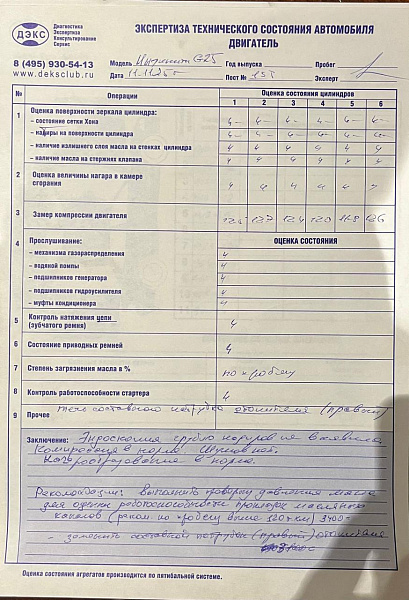 ДЭКС
Диагностика
Экспертиза
Консультирование
Сервис
8 (495) 930-54-13
www.deksclub.ru
ЭКСПЕРТИЗА ТЕХНИЧЕСКОГО СОСТОЯНИЯ АВТОМОБИЛЯ
ДВИГАТЕЛЬ
Модель Инфинити G25 Год выпуска Пробег
Дата 11.11.25г Пост № 15Т Эксперт
№ Операции Оценка состояния цилиндров
1 2 3 4 5 6
1 Оценка поверхности зеркала цилиндра:
– состояние сетки Хона 4- 4- 4- 4- 4- 4-
– надиры на поверхности цилиндра 4- 4- 4- 4- 4-
– наличие излишнего слоя масла на стенках цилиндра 4 4 4 4 4 4
– наличие масла на стержнях клапана 4 4 4 4 4 4
2 Оценка величины нагара в камере
сгорания 4 4 4 4 4 4
3 Замер компрессии двигателя 127 124 120 118 126
4 Прослушивание: ОЦЕНКА СОСТОЯНИЯ
– механизма газораспределения 4
– водяной помпы 4
– подшипников генератора 4
– подшипников гидроусилителя 4
– муфты кондиционера 4
5 Контроль натяжения цепи
(зубчатого ремня) 4
6 Состояние приводных ремней 4
7 Степень загрязнения масла в % по пробегу
8 Контроль работоспособности стартера 4
9 Прочее течь составного патрубка отопителя (правый)
Заключение: Эндоскопия грубых надиров не выявила
Компрессия в норме.
Нагарообразование в норме.
Рекомендации: Выполнить проверку давления масла
для оценки работоспособности прокладок масляных
каналов (реком. по пробегу выше 120 т.км) 3400-
- заменить составной патрубок (правый) отопителя
Оценка состояния агрегатов производится по пятибальной системе.